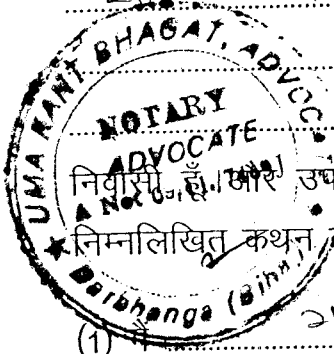 UMA KANT BHAGAT, ADVOC
NOTARY
ADVOCATE
निवासी हूँ, और
निम्नलिखित कथन
Darbhanga (Bihar)
(1) मैं